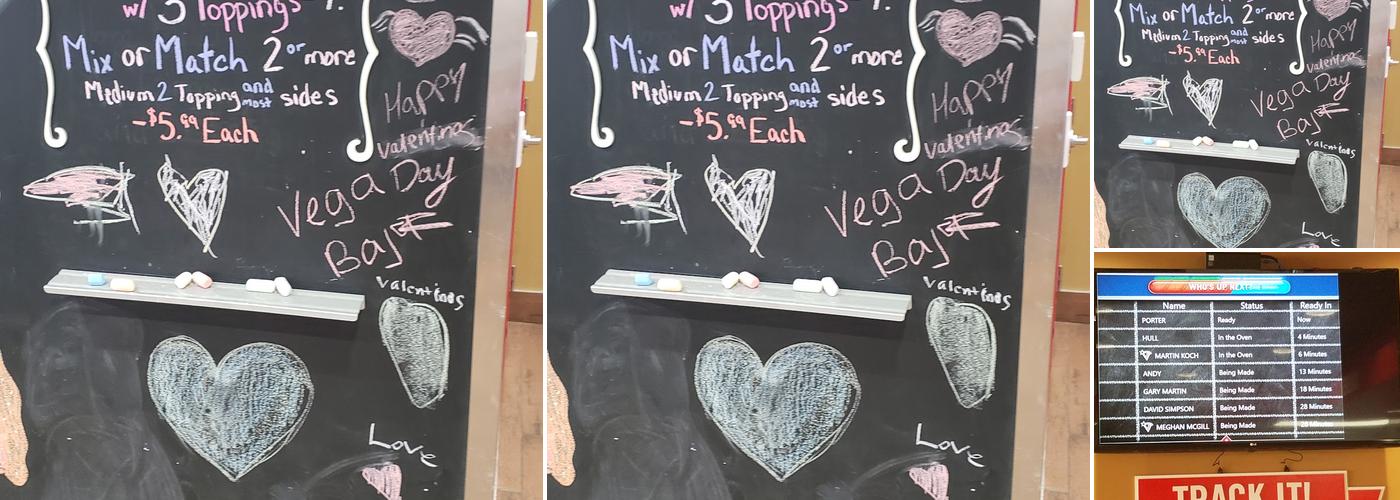 w/ 3 Toppings
Mix or Match 2 or more
Medium 2 Topping and most sides
-$5.99 Each
Happy
valentines
Vega Day
Baj
valentines
Love
w/ 3 Toppings
Mix or Match 2 or more
Medium 2 Topping and most sides
-$5.99 Each
Happy
valentines
Vega Day
Baj
valentines
Love
Mix or Match 2 or more
Medium 2 Topping and most sides
-$5.99 Each
Happy
valentines
Vega Day
Baj
valentines
Love
WHO'S UP NEXT
Name Status Ready In
PORTER Ready Now
HULL In the Oven 4 Minutes
MARTIN KOCH In the Oven 6 Minutes
ANDY Being Made 13 Minutes
GARY MARTIN Being Made 18 Minutes
DAVID SIMPSON Being Made 28 Minutes
MEGHAN MCGILL Being Made 28 Minutes
TRACK IT!